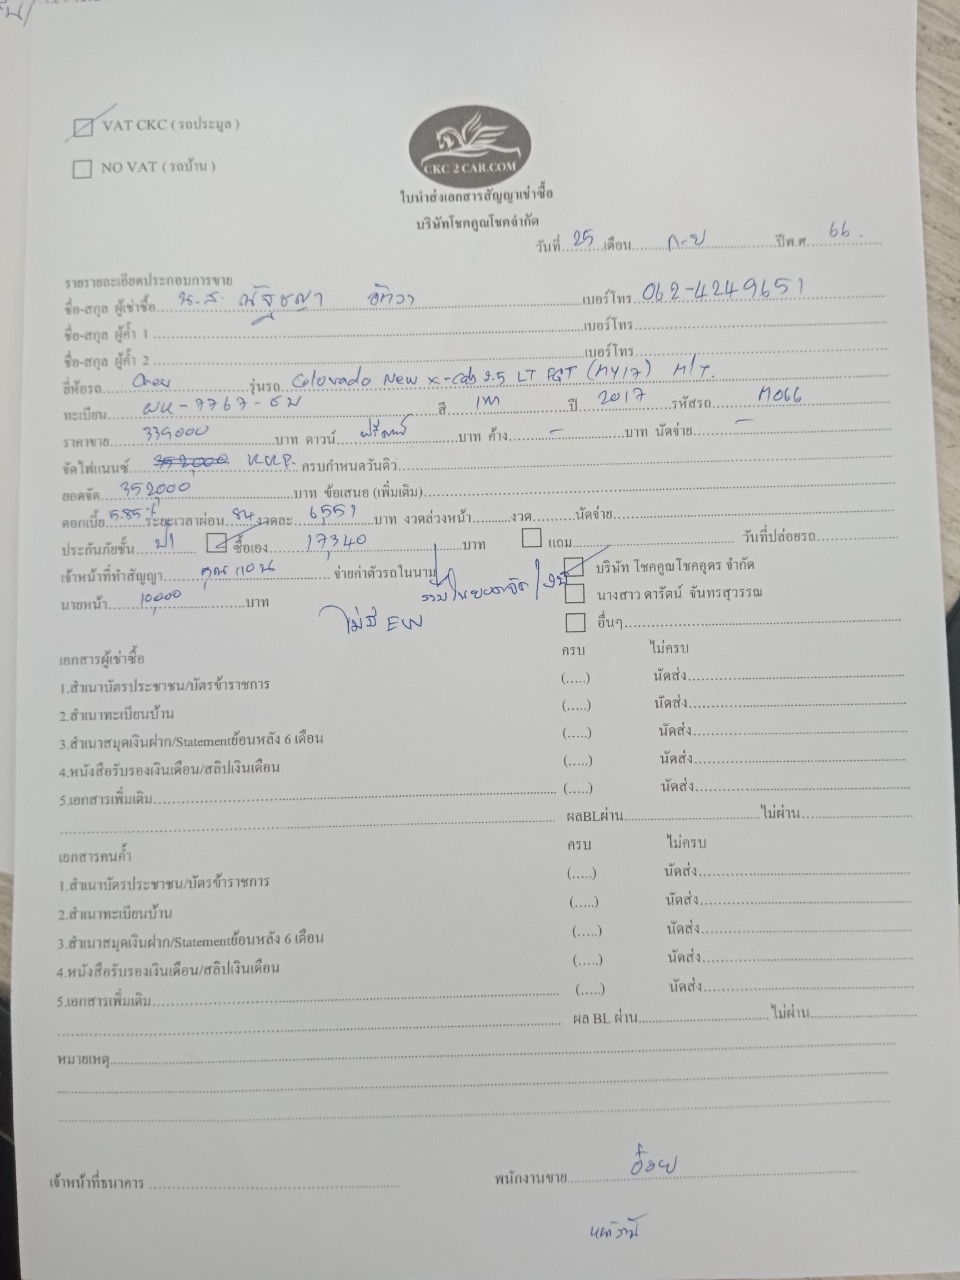 VAT CKC ( รถประมูล )
NO VAT ( รถบ้าน )
CKC 2 CAR.COM
ใบนำส่งเอกสารสัญญาเช่าซื้อ
บริษัทโชคคูณโชคจำกัด
วันที่ 25 เดือน ก.ย ปีพ.ศ. 66.
รายรายละเอียดประกอบการขาย
ชื่อ-สกุล ผู้เช่าซื้อ น.ส. ณัฐชญา เบอร์โทร 062-4249651
ชื่อ-สกุล ผู้ค้ำ 1 เบอร์โทร
ชื่อ-สกุล ผู้ค้ำ 2 เบอร์โทร
ยี่ห้อรถ Chev รุ่นรถ Colorado New x-cab 2.5 LT FGT (MY17) M/T.
ทะเบียน ผห-7767-ชบ สี เทา ปี 2017 รหัสรถ M066
ราคาขาย 339000 บาท ดาวน์ ฟรีดาวน์ บาท ค้าง - บาท นัดจ่าย -
จัดไฟแนนซ์ 352,000 KKP. ครบกำหนดวันดิว
ยอดจัด 352000 บาท ข้อเสนอ (เพิ่มเติม)
ดอกเบี้ย 5.85% ระยะเวลาผ่อน 84 งวดละ 6551 บาท งวดล่วงหน้า งวด นัดจ่าย
ประกันภัยชั้น ป1 ซื้อเอง 17,340 บาท แถม วันที่ปล่อยรถ
เจ้าหน้าที่ทำสัญญา คุณแอน จ่ายค่าตัวรถในนาม บริษัท โชคคูณโชคอุดร จำกัด
รวมในยอดจัด
นายหน้า 10,000 บาท นางสาว ดารัตน์ จันทรสุวรรณ
ไม่มี EW อื่นๆ
เอกสารผู้เช่าซื้อ ครบ ไม่ครบ
1.สำเนาบัตรประชาชน/บัตรข้าราชการ (.....) นัดส่ง
2.สำเนาทะเบียนบ้าน (.....) นัดส่ง
3.สำเนาสมุดเงินฝาก/Statementย้อนหลัง 6 เดือน (.....) นัดส่ง
4.หนังสือรับรองเงินเดือน/สลิปเงินเดือน (.....) นัดส่ง
5.เอกสารเพิ่มเติม (.....) นัดส่ง
ผลBLผ่าน ไม่ผ่าน
เอกสารคนค้ำ ครบ ไม่ครบ
1.สำเนาบัตรประชาชน/บัตรข้าราชการ (.....) นัดส่ง
2.สำเนาทะเบียนบ้าน (.....) นัดส่ง
3.สำเนาสมุดเงินฝาก/Statementย้อนหลัง 6 เดือน (.....) นัดส่ง
4.หนังสือรับรองเงินเดือน/สลิปเงินเดือน (.....) นัดส่ง
5.เอกสารเพิ่มเติม (.....) นัดส่ง
ผล BL ผ่าน ไม่ผ่าน
หมายเหตุ
เจ้าหน้าที่ธนาคาร พนักงานขาย อ้อย